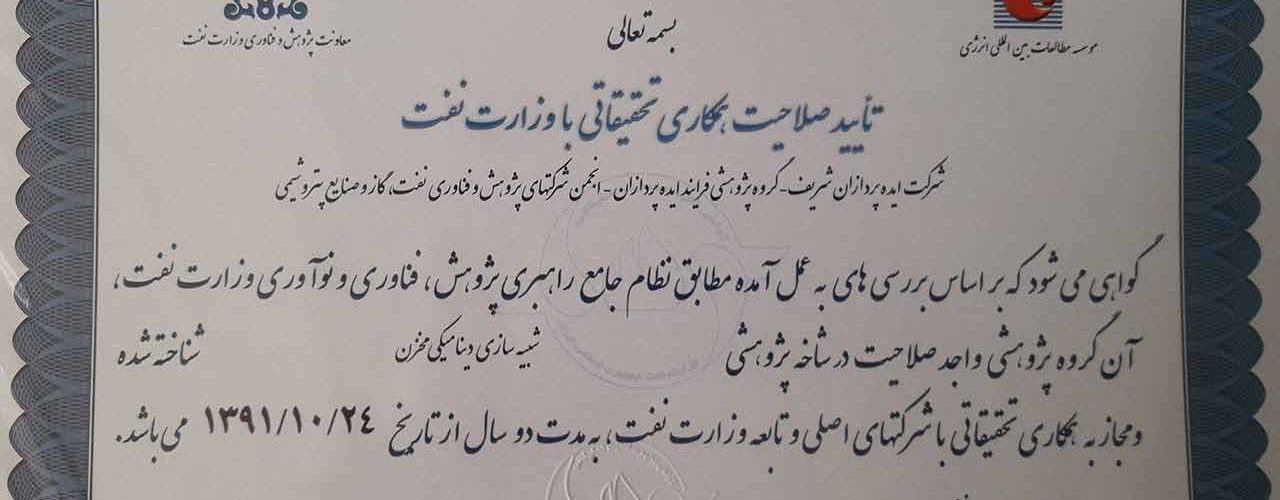 بسمه تعالی
موسسه مطالعات بین المللی انرژی
معاونت پژوهش و فناوری وزارت نفت
تأیید صلاحیت همکاری تحقیقاتی با وزارت نفت
شرکت ایده پردازان شریف - گروه پژوهشی فرایند ایده پردازان - انجمن شرکتهای پژوهش و فناوری نفت، گاز و صنایع پتروشیمی
گواهی می شود که بر اساس بررسی های به عمل آمده مطابق نظام جامع راهبری پژوهش، فناوری و نوآوری وزارت نفت،
آن گروه پژوهشی واجد صلاحیت در شاخه پژوهشی شبیه سازی دینامیکی مخزن شناخته شده
و مجاز به همکاری تحقیقاتی با شرکتهای اصلی و تابعه وزارت نفت، به مدت دو سال از تاریخ ۱۳۹۱/۱۰/۲۴ می باشد.